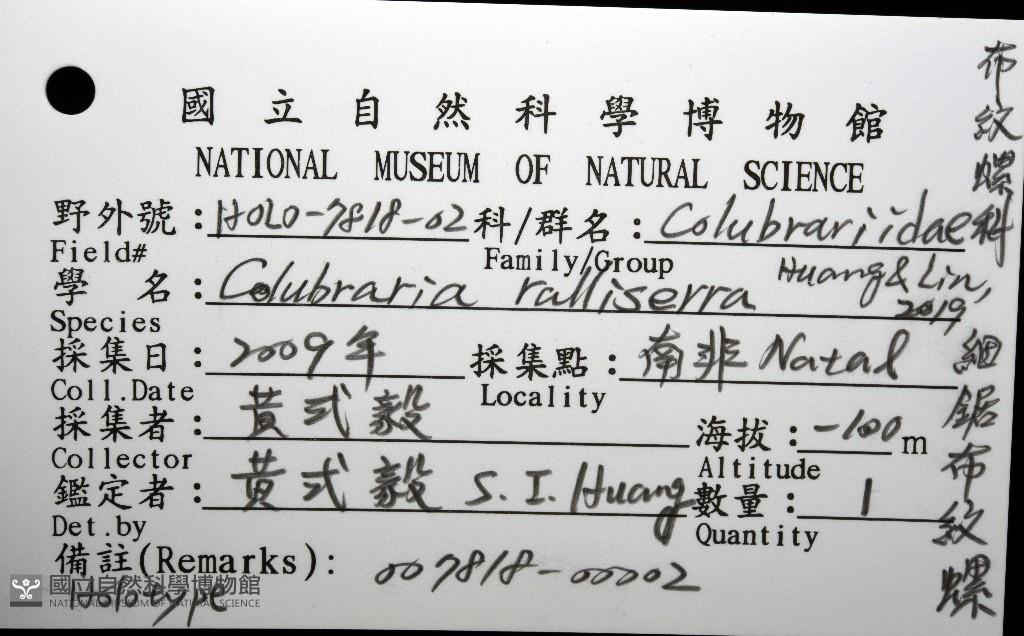 國立自然科學博物館
NATIONAL MUSEUM OF NATURAL SCIENCE
野外號：HOLO-7818-02 科/群名：Colubrariidae
Field# Family/Group
學名：Colubraria ralliserra Huang & Lin, 2019
Species
採集日：2009年 採集點：南非 Natal
Coll.Date Locality
採集者：黃式毅 海拔：-100m
Collector Altitude
鑑定者：黃式毅 S. I. Huang 數量：1
Det.by Quantity
備註(Remarks): 007818-00002
Holotype
布紋螺科
細鋸布紋螺
國立自然科學博物館
NATIONAL MUSEUM OF NATURAL SCIENCE